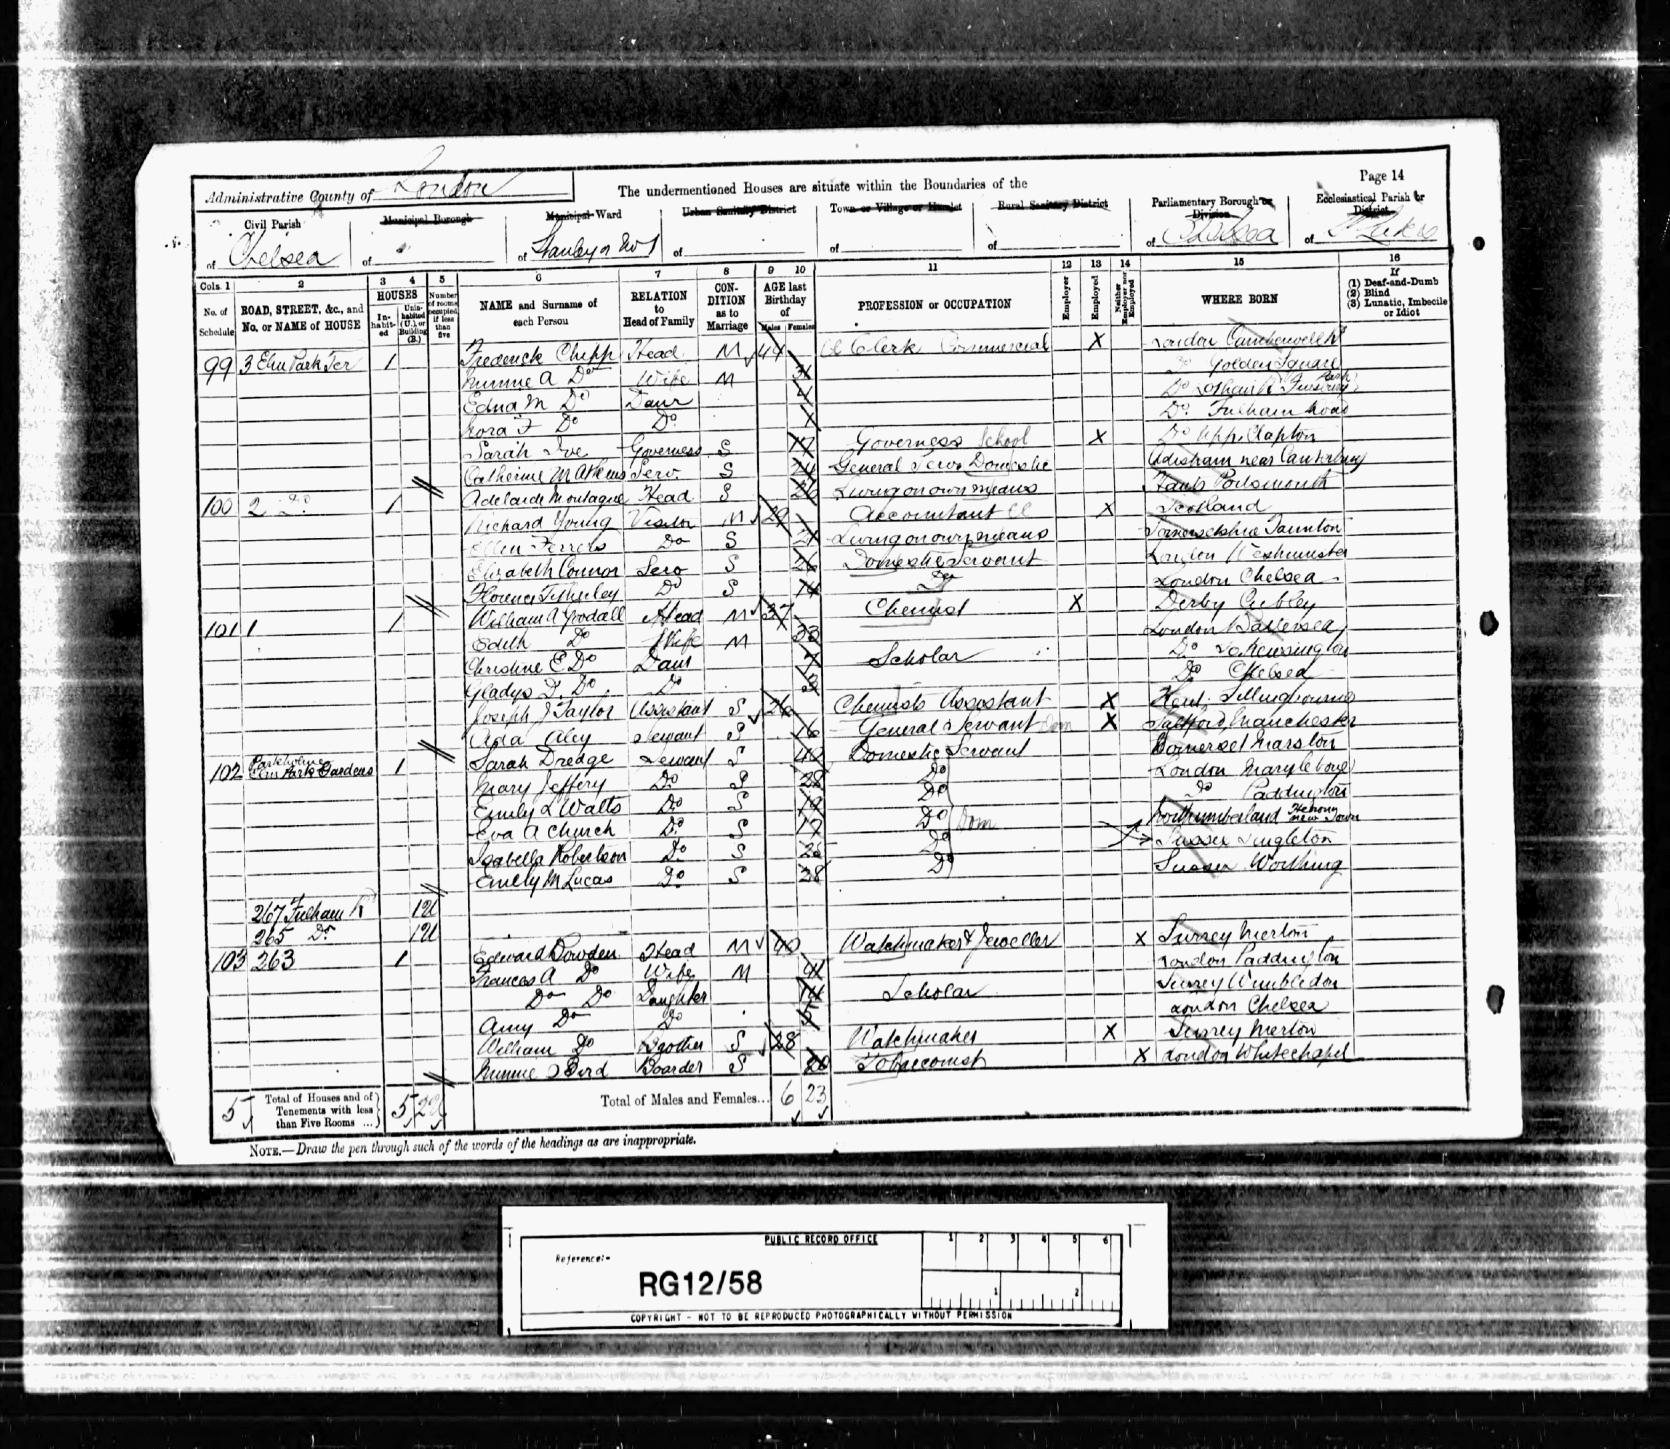 Page 14
Administrative County of London
The undermentioned Houses are situate within the Boundaries of the
Civil Parish
Municipal Borough
Municipal Ward
Urban Sanitary District
Town or Village or Hamlet
Rural Sanitary District
Parliamentary Borough or Division
Ecclesiastical Parish or District
of Chelsea
of
of Stanley
of
of
of
of Chelsea
of St Lukes
Cols. 1 2 3 4 5 6 7 8 9 10 11 12 13 14 15 16
No. of Schedule
ROAD, STREET, &c., and No. or NAME of HOUSE
HOUSES
Inhabited
Uninhabited (U.), or Building (B.)
Number of rooms occupied if less than five
NAME and Surname of each Person
RELATION to Head of Family
CONDITION as to Marriage
AGE last Birthday of
Males Females
PROFESSION or OCCUPATION
Employer
Employed
Neither Employer nor Employed
WHERE BORN
If
(1) Deaf-and-Dumb
(2) Blind
(3) Lunatic, Imbecile or Idiot
99 3 Elm Park Ter 1 Frederick Chipp Head M 44 Clerk Commercial X London Camberwell
Minnie A Do Wife M 31 Do Golden Square
Edna M Do Daur 4 Do
Nora F Do Do Do Fulham Road
Sarah Ive Governess S 19 Governess School X Do Upp. Clapton
Catherine M Atkins Serv. S 24 General Serv Domestic Adisham near Canterbury
100 2 Do 1 Adelaide Montague Head S 26 Living on own means Hants Portsmouth
Richard Young Visitor M 29 Accountant Cl X Scotland
Ellen Ferrers Do S 21 Living on own means Somersetshire Taunton
Elizabeth Connor Serv S 26 Domestic Servant London Westminster
Florence Do S 14 Do London Chelsea
101 1 1 William A Goodall Head M 37 Chemist X Derby Cubley
Edith Do Wife M 33 London Battersea
Christine E Do Daur 7 Scholar Do So Kensington
Gladys F. Do Do 3 Do Chelsea
Joseph J Taylor Assistant S 26 Chemists Assistant X Kent,
Ada Aley Servant S 16 General Servant Dom X Salford, Manchester
102 Parkholme Elm Park Gardens 1 Sarah Dredge Servant S 40 Domestic Servant Somerset Marston
Mary Jeffery Do S 28 Do London Marylebone
Emily L Watts Do S 19 Do Do Paddington
Eva A Church Do S 17 Do Dom Northumberland New Town
Isabella Robertson Do S 28 Do Sussex Singleton
Emily M Lucas Do S 28 Do Sussex Worthing
267 Fulham Rd 1U
265 Do 1U
103 263 1 Edward Dowden Head M 40 Watchmaker & Jeweller X Surrey Merton
Frances A Do Wife M 41 London Paddington
Do Do Daughter 14 Scholar Surrey Wimbledon
Amy Do Do 5 London Chelsea
William Do Brother S 28 Watchmaker X Surrey Merton
Minnie J Bird Boarder S 20 Tobacconist X London Whitechapel
5 Total of Houses and of Tenements with less than Five Rooms ... 5 2U
Total of Males and Females... 6 23
NOTE.—Draw the pen through such of the words of the headings as are inappropriate.
PUBLIC RECORD OFFICE
Reference:-
RG12/58
1 2 3 4 5 6
1 2
COPYRIGHT - NOT TO BE REPRODUCED PHOTOGRAPHICALLY WITHOUT PERMISSION